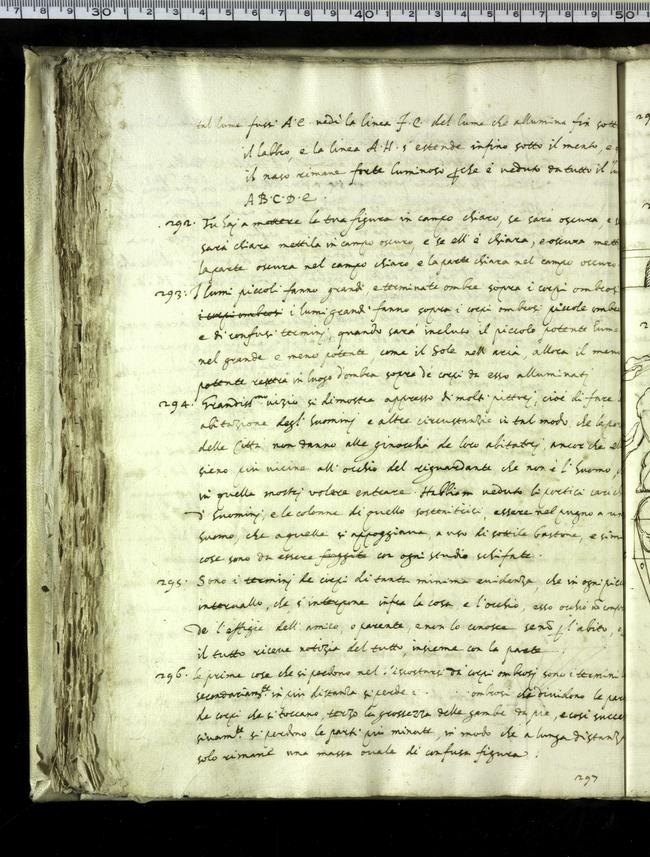 tal lume fussi A.C. vedi la linea F.C. del lume che allumina fin sott
il labbro, e la linea A.H. s'estende infino sotto il mento, e
il naso rimane forte luminoso che è veduto da tutto il
A B C D E.
292. la tua figura in campo chiaro, se sarà oscura, e
sarà chiara mettila in campo oscuro e se ell è chiara, e oscura mett
la parte oscura nel campo chiaro e la parte chiara nel campo oscuro
293. I lumi piccoli fanno grandi e terminate ombre sopra i corpi ombrosi
i corpi ombrosi i lumi grandi fanno sopra i corpi ombrosi piccole ombre
e di confusi termini, quando sarà incluso il piccolo e potente lume
nel grande e meno potente come il Sole nell'aria, allora il meno
potente resterà in luogo d'ombra sopra de corpi da esso alluminati
294. Grandiss.mo vizio si dimostra appresso di molti pittori, cioè di fare
abitazione degl'huomini e altre circunstanzie in tal modo, che le por
delle Città non danno alle ginocchia de loro abitatori ancor che
sieno più vicine all'occhio del riguardante che non è l'huomo,
in quella mostri volere entrare. Habbiam veduto li portici caric
d'huomini, e le colonne di quello sostenitrici, essere nel pugno a un
huomo, che a quelle si appoggiava, a uso di sottile bastone, e sim
cose sono da essere con ogni studio schifate.
295. Sono i termini de corpi di tanta minima evidenza, che in ogni picc
intervallo, che s'interpone infra la cosa e l'occhio, esso occhio non comp
de l'effigie dell'amico, o parente, e non lo conosce se no p l'abito,
il tutto riceve notizia del tutto, insieme con la parte
296. le prime cose che si perdono nel discostarsi da corpi ombrosi sono i termini
secondariam.te in più distanza si perde ombrosi che dividono le par
de corpi che si toccano, terzo la grossezza delle gambe da pie, e così succes
sivam.te si perdono le parti più minute, in modo che a lunga distanz
solo rimane una massa ovale di confusa figura.
297